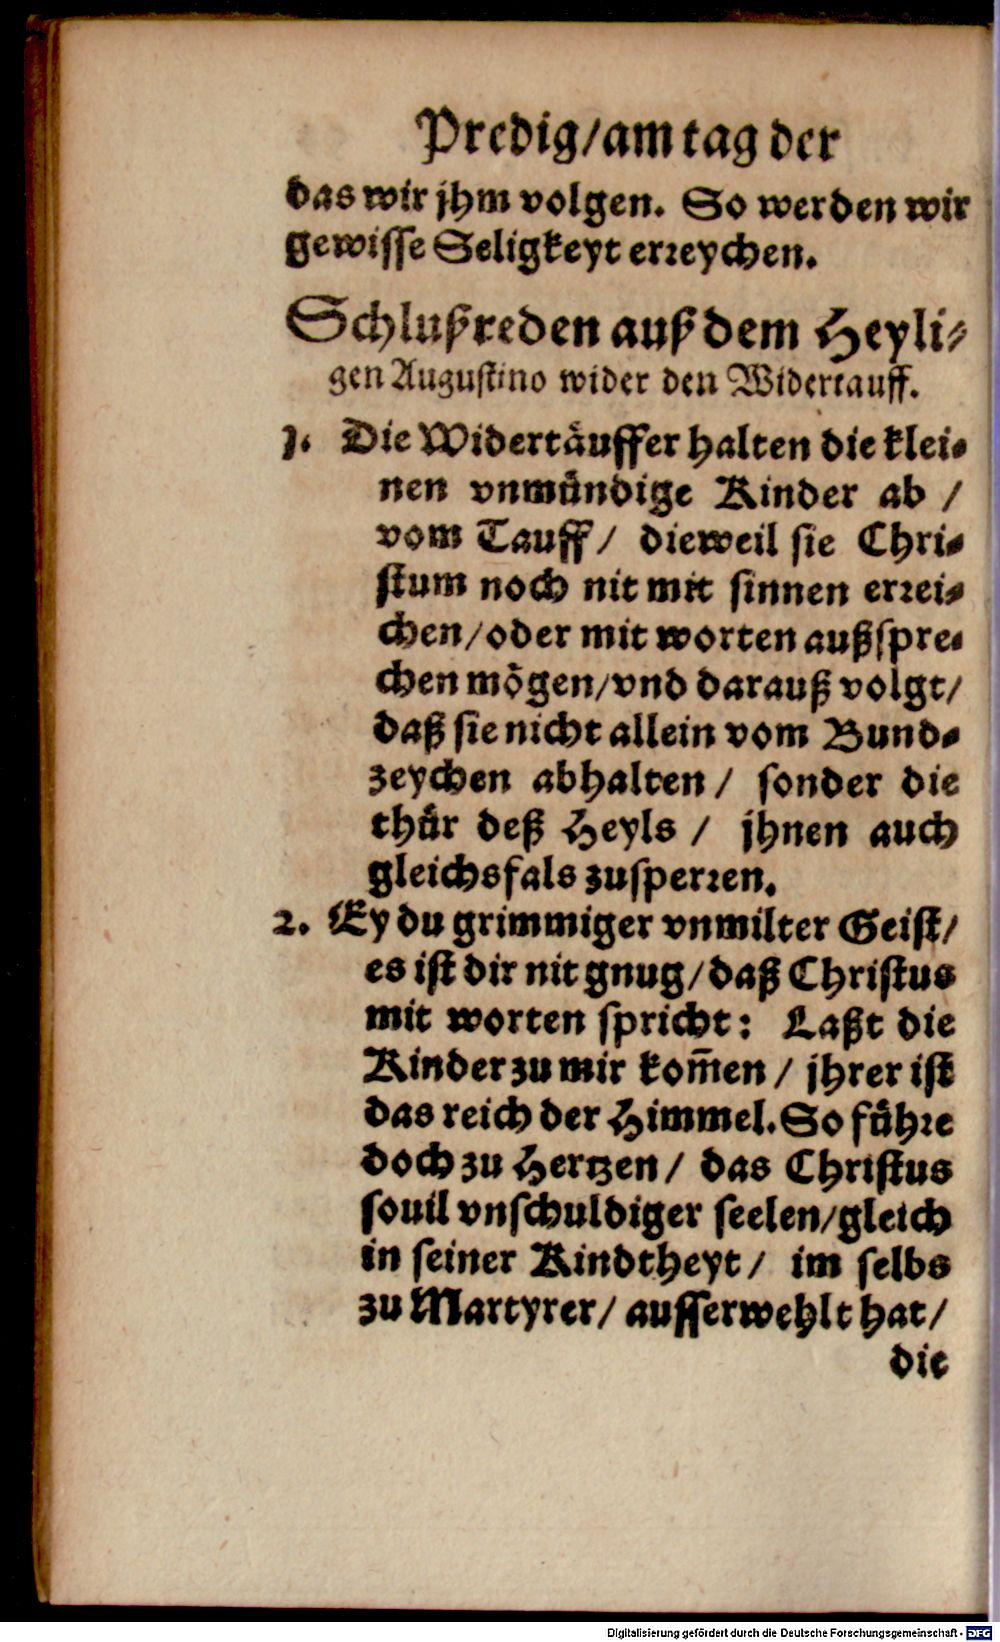 Predig/am tag der
das wir jhm volgen. So werden wir
gewisse Seligkeyt erꝛeychen.
Schlußreden auß dem Heyli⸗
gen Augustino wider den Widertauff.
1. Die Widertäuffer halten die klei⸗
nen vnmündige Kinder ab /
vom Tauff / dieweil sie Chri⸗
stum noch nit mit sinnen erꝛei⸗
chen/oder mit worten außspre⸗
chen mögen/vnd darauß volgt/
daß sie nicht allein vom Bund⸗
zeychen abhalten / sonder die
thür deß Heyls / jhnen auch
gleichsfals zusperꝛen.
2. Ey du grimmiger vnmilter Geist/
es ist dir nit gnug/daß Christus
mit worten spricht: Laßt die
Kinder zu mir kom̄en / jhrer ist
das reich der Himmel. So führe
doch zu Hertzen / das Christus
souil vnschuldiger seelen/gleich
in seiner Kindtheyt / im selbs
zu Martyrer/ ausserwehlt hat/
die
Digitalisierung gefördert durch die Deutsche Forschungsgemeinschaft - DFG